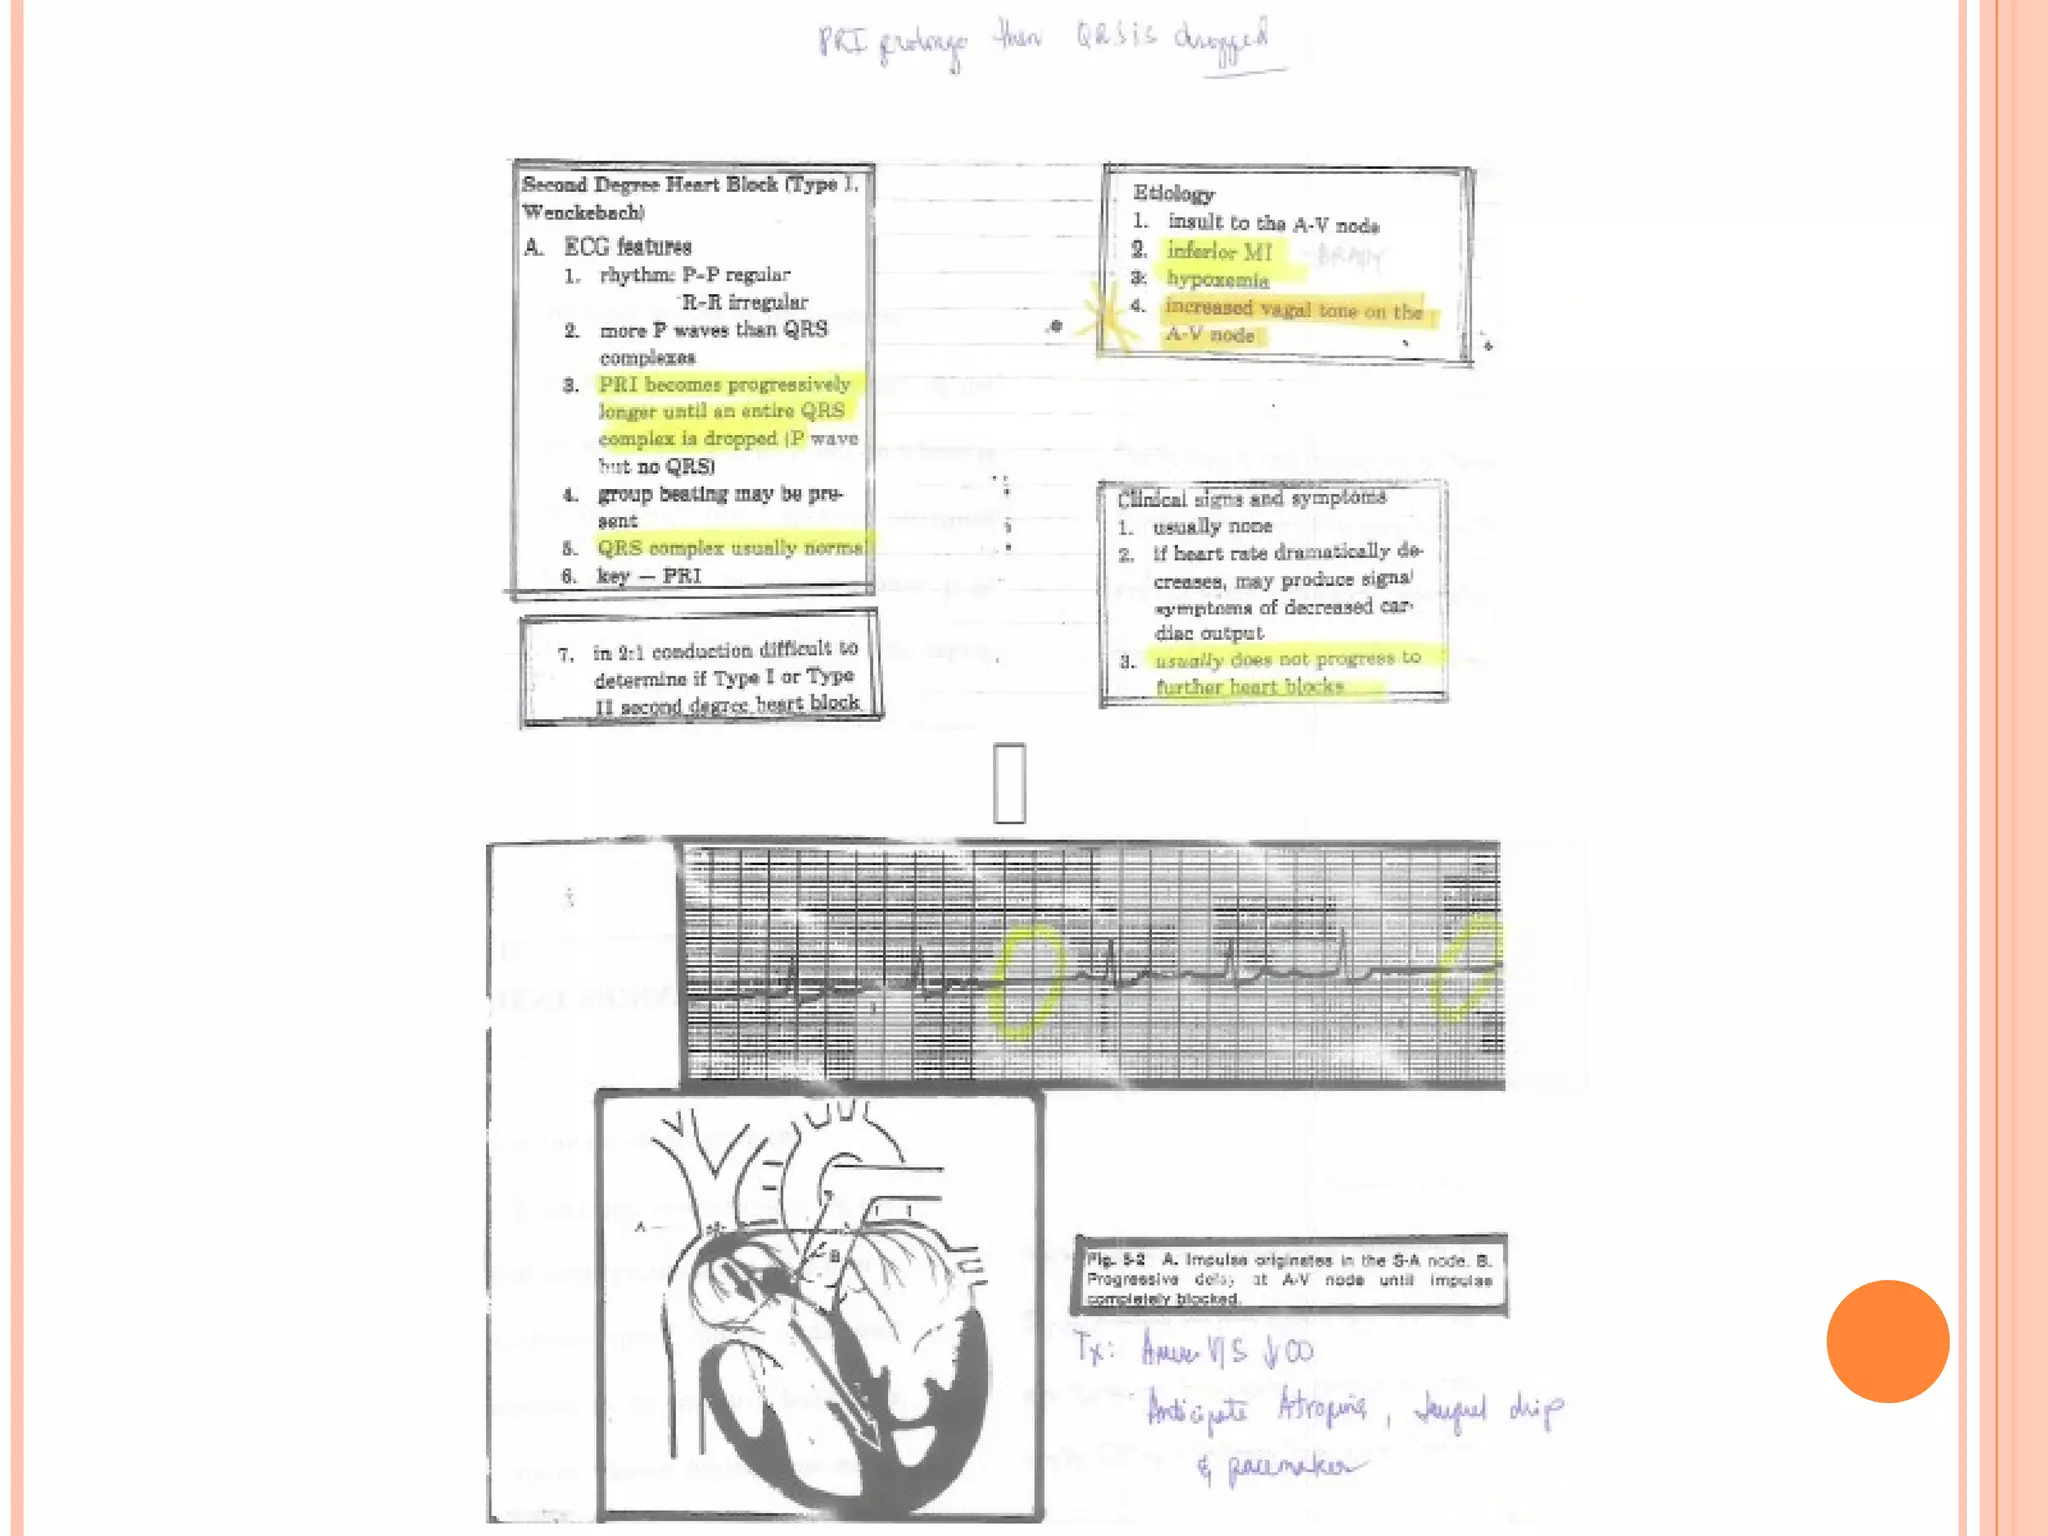 PRI prolongs then QRS is dropped
Second Degree Heart Block (Type I,
Wenckebach)
A. ECG features
1. rhythm: P-P regular
R-R irregular
2. more P waves than QRS
complexes
3. PRI becomes progressively
longer until an entire QRS
complex is dropped (P wave
but no QRS)
4. group beating may be pre-
sent
5. QRS complex usually normal
6. key — PRI
7. in 2:1 conduction difficult to
determine if Type I or Type
II second degree heart block
Etiology
1. insult to the A-V node
2. inferior MI - BRADY
3. hypoxemia
4. increased vagal tone on the
A-V node
Clinical signs and symptoms
1. usually none
2. if heart rate dramatically de-
creases, may produce signs/
symptoms of decreased car-
diac output
3. usually does not progress to
further heart blocks
A
B
Fig. 5-2 A. Impulse originates in the S-A node. B.
Progressive delay at A-V node until impulse
completely blocked.
Tx: S/S ↓CO
Anticipate Atropine, Isuprel drip
& pacemaker